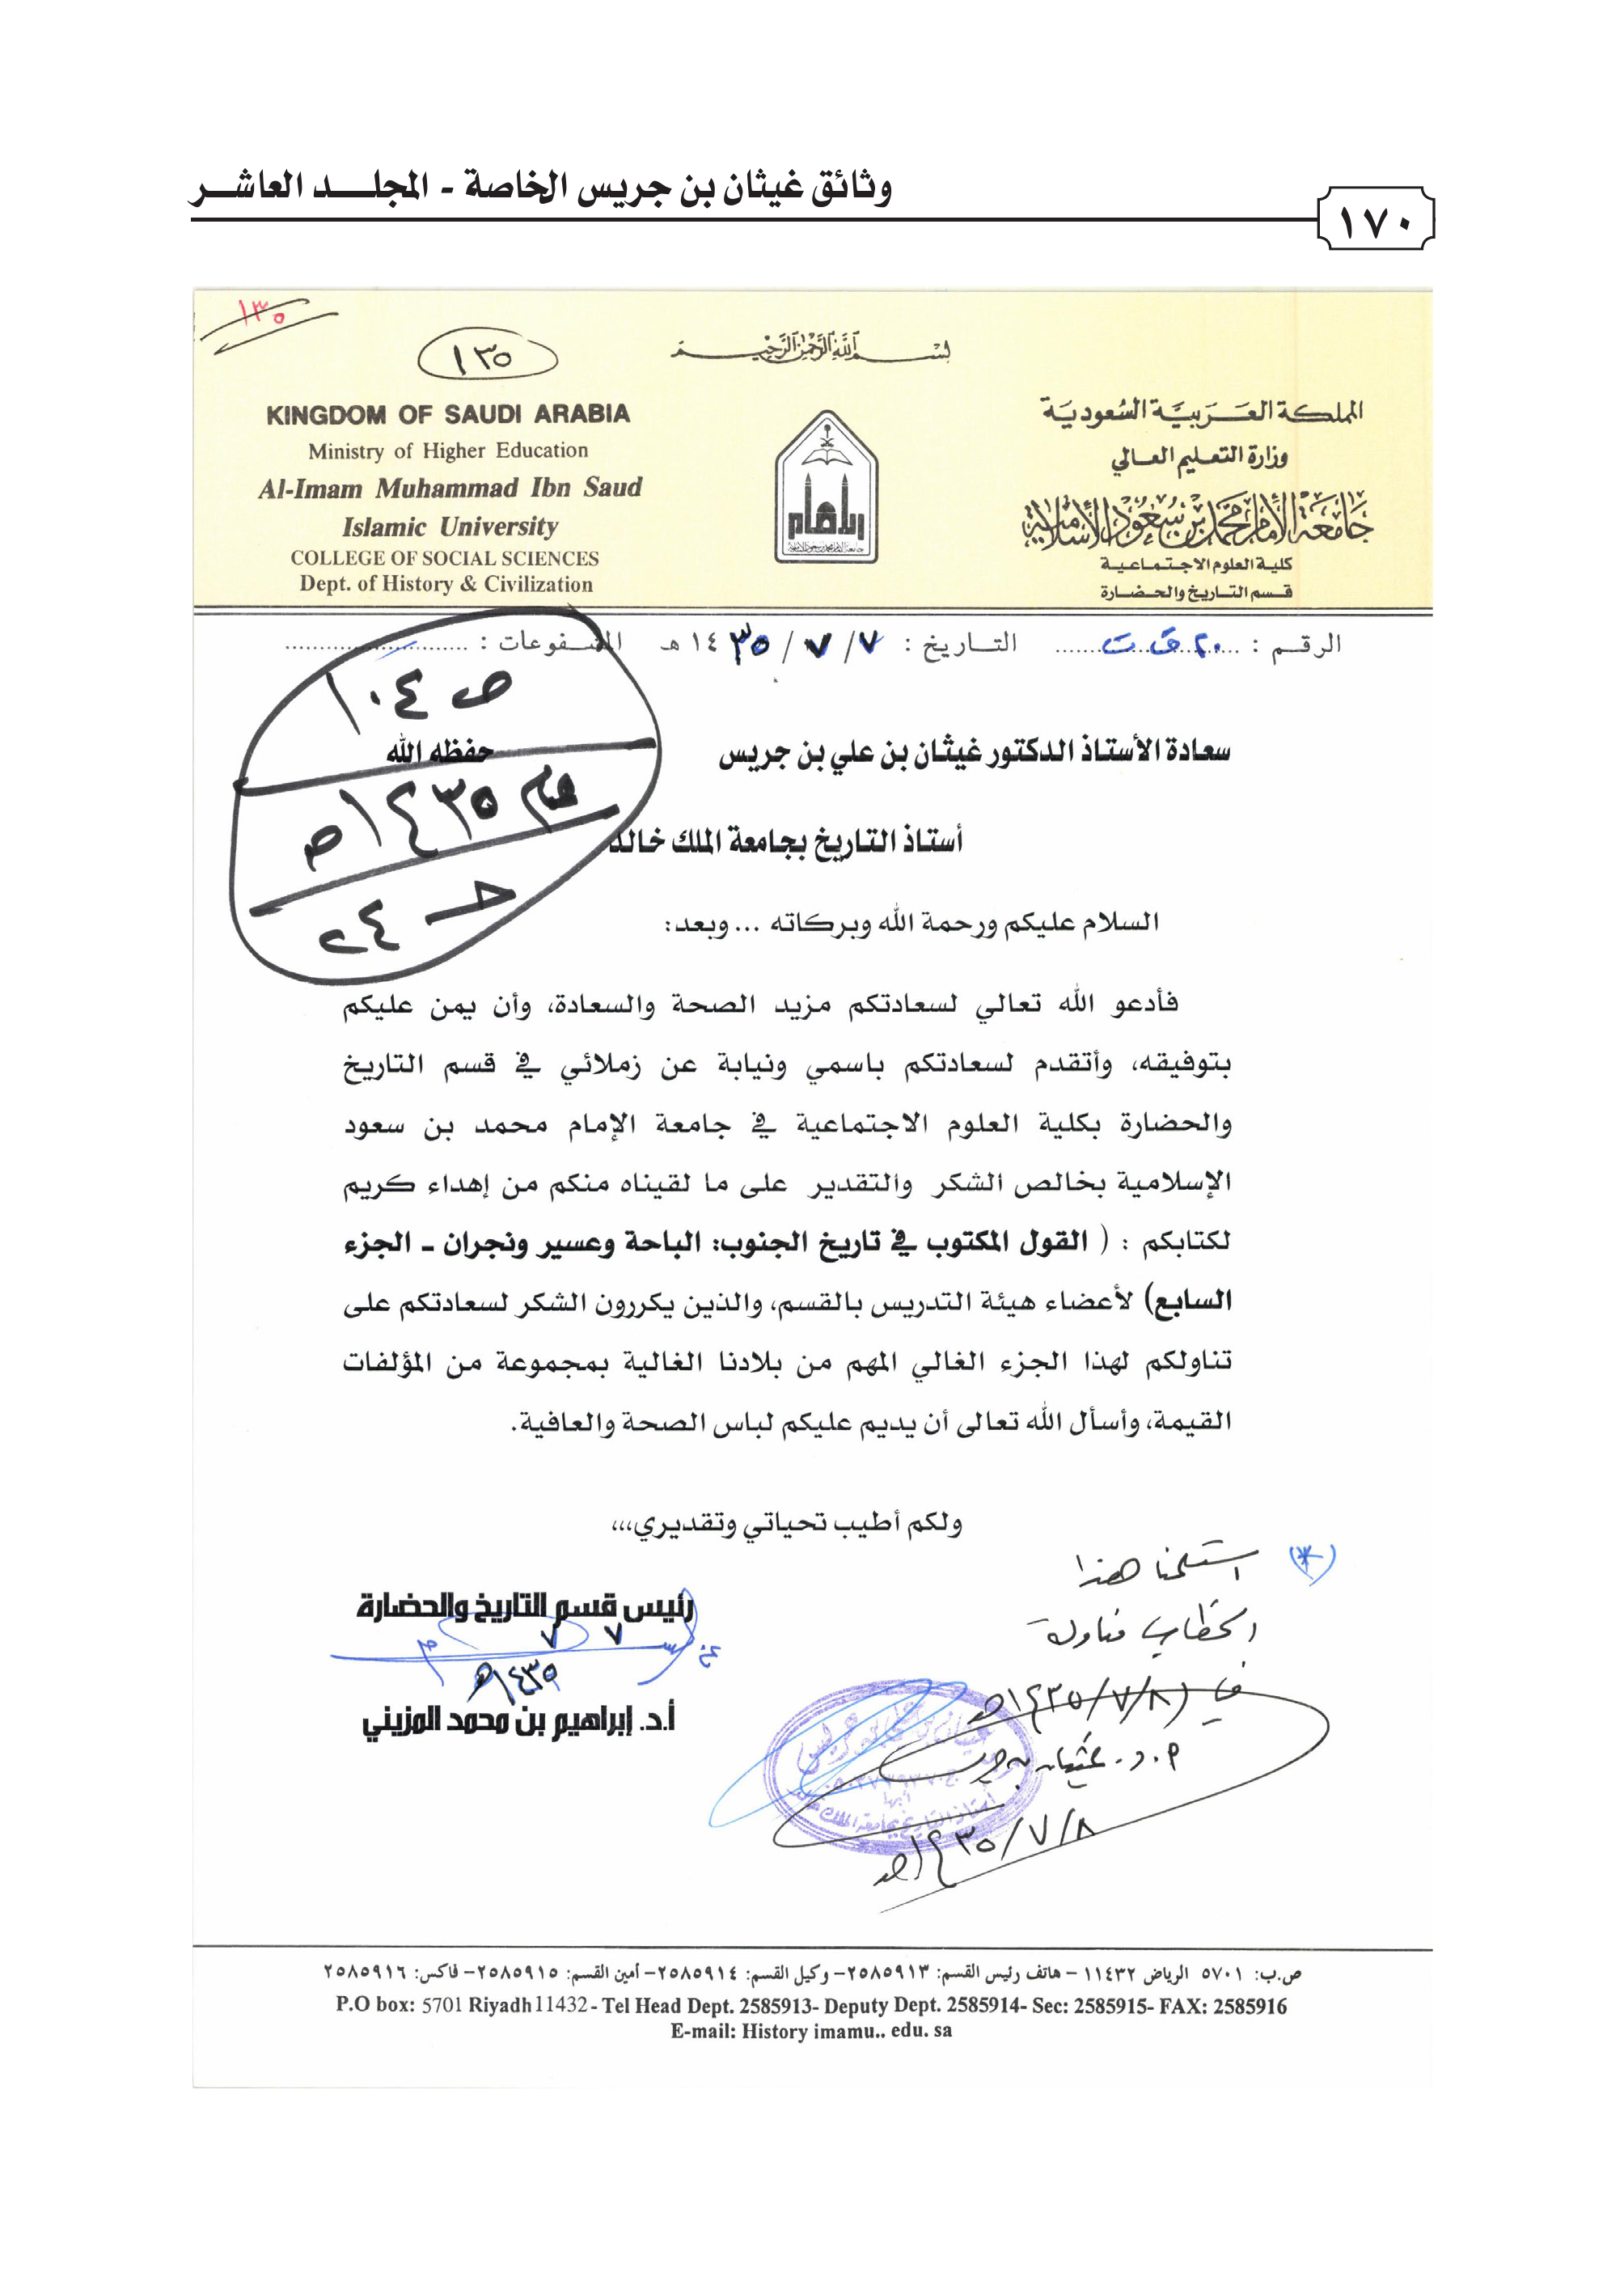 وثائق غيثان بن جريس الخاصة - المجلد العاشر
١٧٠
١٣٥
١٣٥
بسم الله الرحمن الرحيم
KINGDOM OF SAUDI ARABIA
Ministry of Higher Education
Al-Imam Muhammad Ibn Saud
Islamic University
COLLEGE OF SOCIAL SCIENCES
Dept. of History & Civilization
المملكة العربية السعودية
وزارة التعليم العالي
جامعة الإمام محمد بن سعود الإسلامية
كلية العلوم الاجتماعية
قسم التاريخ والحضارة
الرقم : ٢٠ ق ت التاريخ : ٧ / ٧ / ١٤٣٥ هـ المشفوعات :
ص ١٠٤
١٤٣٥هـ
ح ٢٤
سعادة الأستاذ الدكتور غيثان بن علي بن جريس حفظه الله
أستاذ التاريخ بجامعة الملك خالد
السلام عليكم ورحمة الله وبركاته ... وبعد:
فأدعو الله تعالي لسعادتكم مزيد الصحة والسعادة، وأن يمن عليكم
بتوفيقه، وأتقدم لسعادتكم باسمي ونيابة عن زملائي في قسم التاريخ
والحضارة بكلية العلوم الاجتماعية في جامعة الإمام محمد بن سعود
الإسلامية بخالص الشكر والتقدير على ما لقيناه منكم من إهداء كريم
لكتابكم : ( القول المكتوب في تاريخ الجنوب: الباحة وعسير ونجران ـ الجزء
السابع) لأعضاء هيئة التدريس بالقسم، والذين يكررون الشكر لسعادتكم على
تناولكم لهذا الجزء الغالي المهم من بلادنا الغالية بمجموعة من المؤلفات
القيمة، وأسأل الله تعالى أن يديم عليكم لباس الصحة والعافية.
ولكم أطيب تحياتي وتقديري،،،
رئيس قسم التاريخ والحضارة
٧ ٧
١٤٣٥هـ
أ.د. إبراهيم بن محمد المزيني
(*) استلمنا هذا
الخطاب مناولة
في (٨/٧/١٤٣٥هـ
أ.د. غيثان بن جريس
٨/٧/١٤٣٥هـ
أبها
أستاذ التاريخ بجامعة الملك خالد
ص.ب: ٥٧٠١ الرياض ١١٤٣٢ – هاتف رئيس القسم: ٢٥٨٥٩١٣– وكيل القسم: ٢٥٨٥٩١٤– أمين القسم: ٢٥٨٥٩١٥– فاكس: ٢٥٨٥٩١٦
P.O box: 5701 Riyadh11432 - Tel Head Dept. 2585913- Deputy Dept. 2585914- Sec: 2585915- FAX: 2585916
E-mail: History imamu.. edu. sa